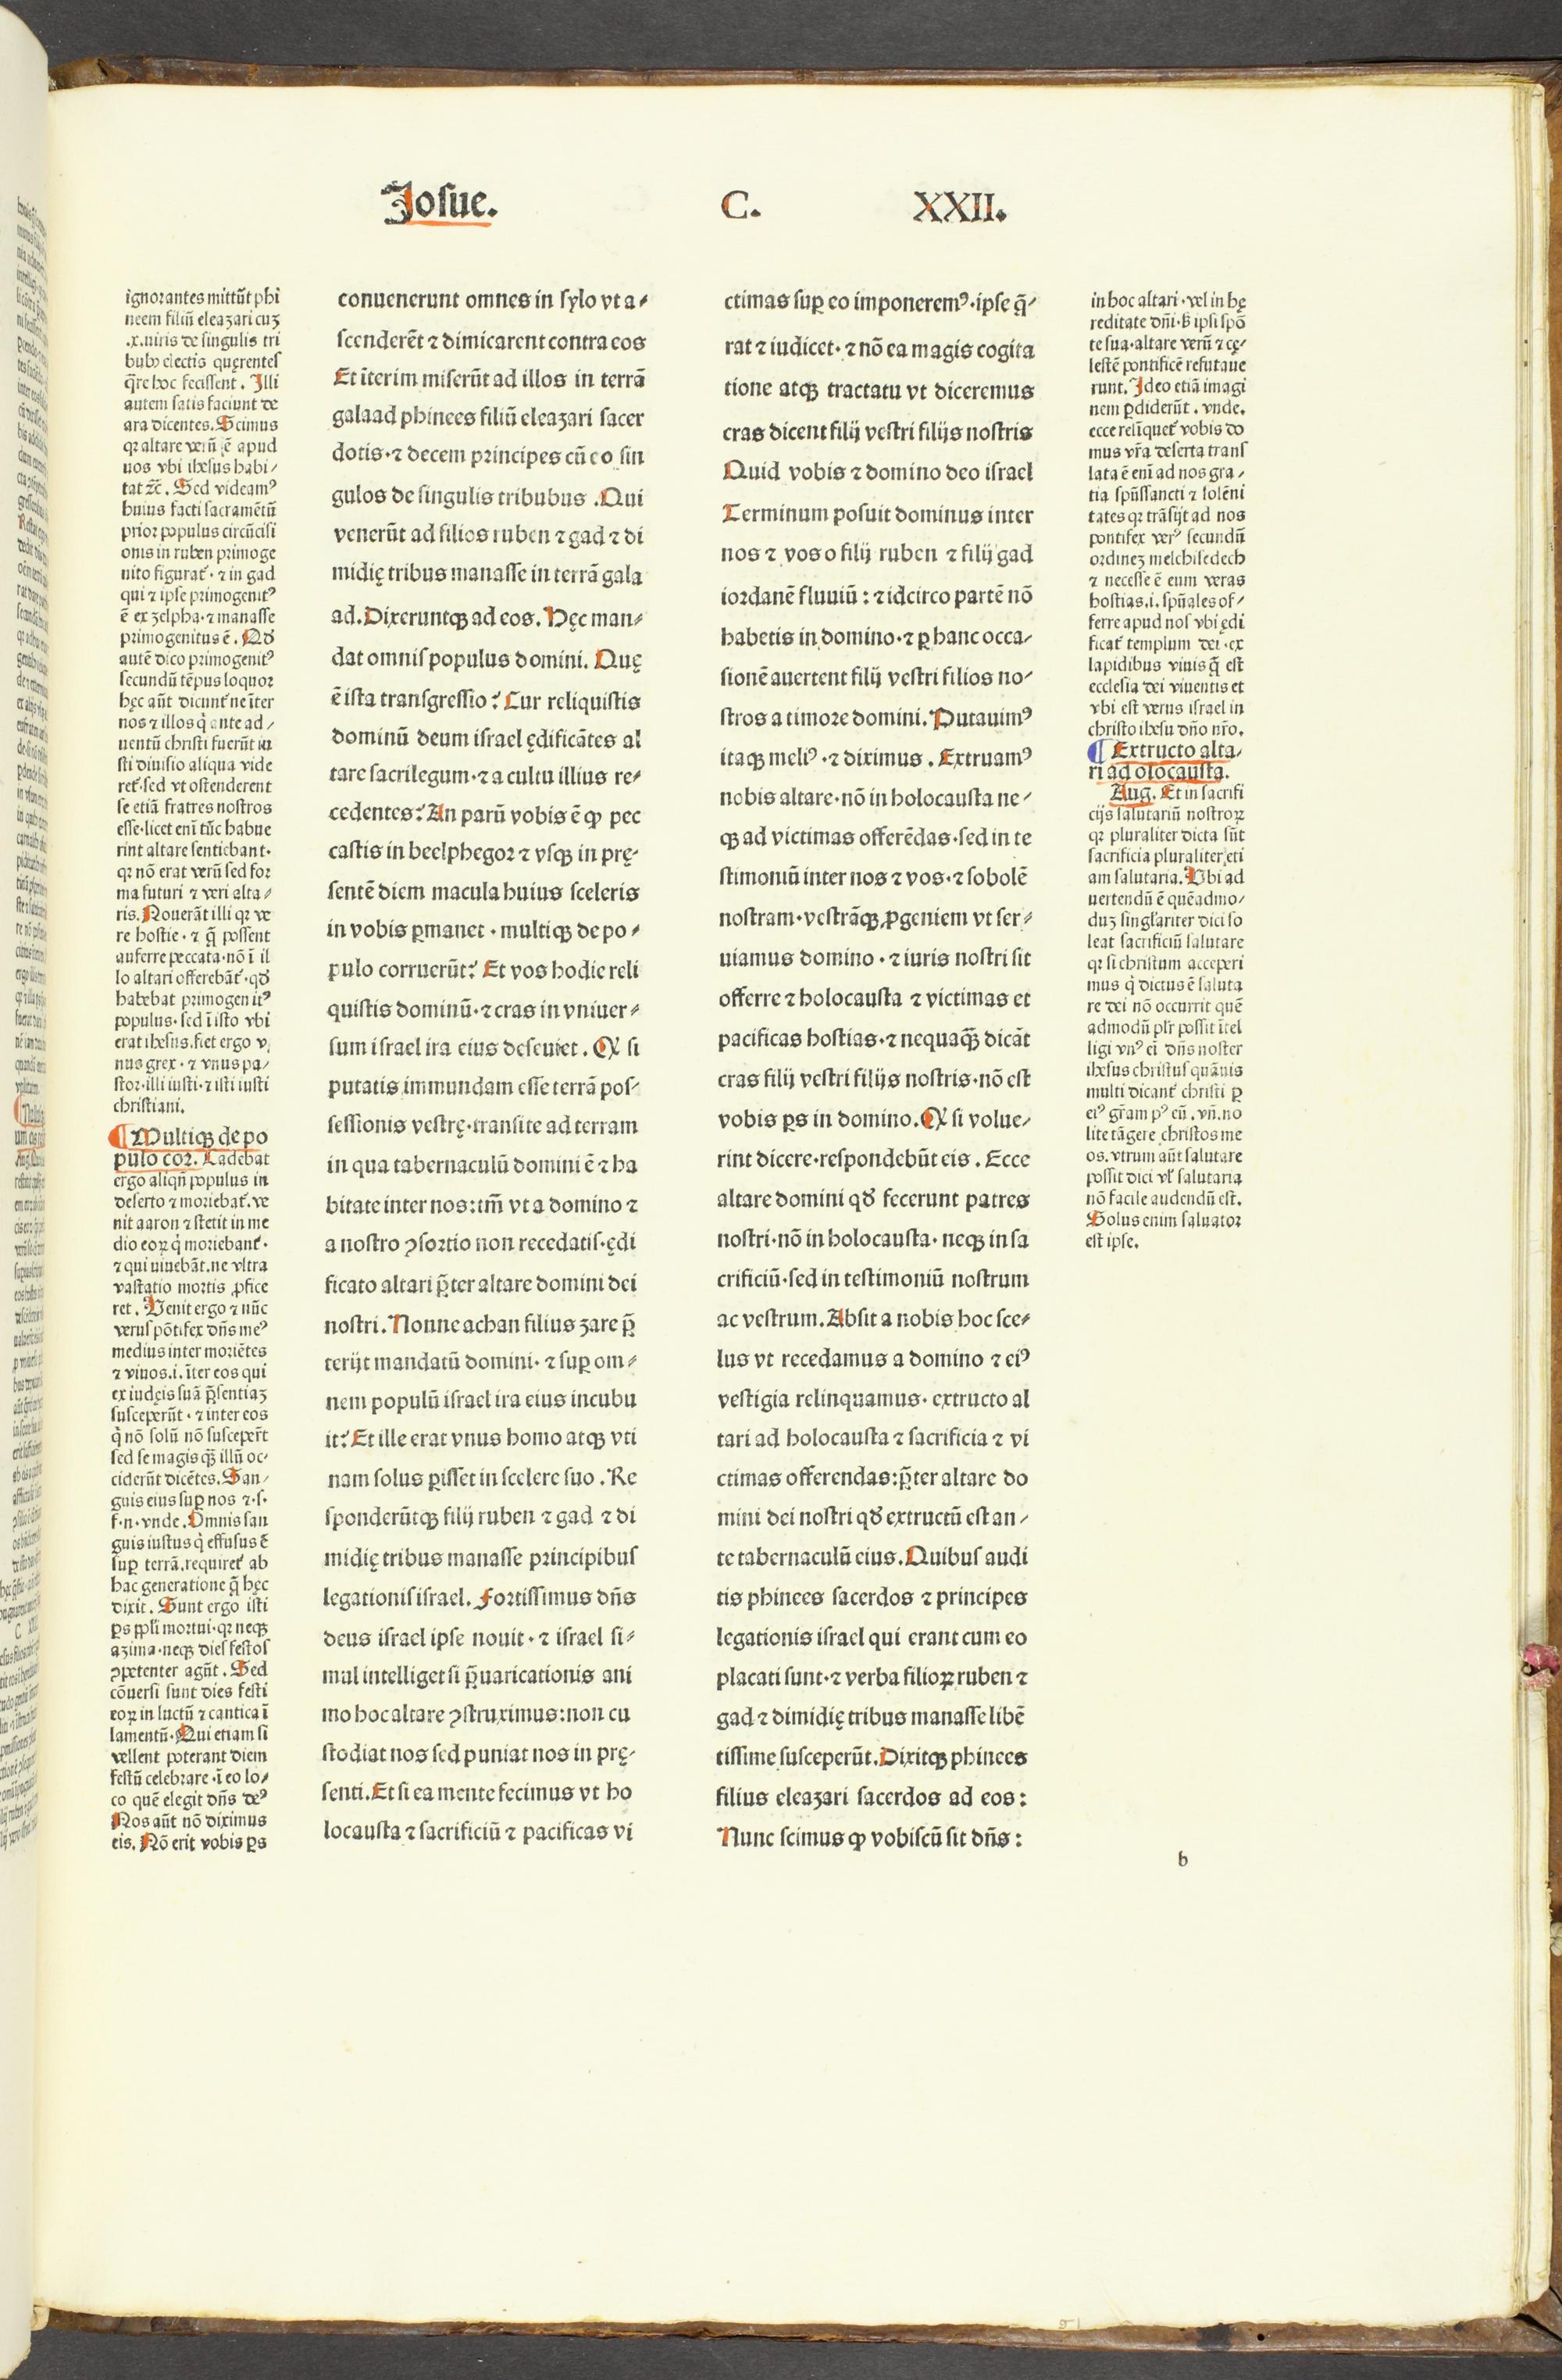 Josue. C. XXII.
ignorantes mittūt phi
neem filiū eleazari cuꝫ
.x. uiris de singulis tri
bubꝰ electis quęrentes
q̄re hoc fecissent. Illi
autem satis faciunt de
ara dicentes. Scimus
qꝛ altare verū ē apud
uos vbi ihesus habi⸗
tat ⁊c̄. Sed videamꝰ
huius facti sacramētū
prior populus circūcisi
onis in ruben primoge
nito figurat᷑ · ⁊ in gad
qui ⁊ ipse primogenitꝰ
ē ex zelpha · ⁊ manasse
primogenitus ē. Qđ
autē dico primogenitꝰ
secundū tēpus loquor
hęc aūt dicunt᷑ ne īter
nos ⁊ illos q̇ ante ad⸗
uentū christi fuerūt iu
sti diuisio aliqua vide
ret᷑ · sed vt ostenderent
se etiā fratres nostros
esse · licet eni tūc habue
rint altare sentiebant ·
qꝛ nō erat verū sed for
ma futuri ⁊ veri alta⸗
ris. Nouerāt illi qꝛ ve
re hostie · ⁊ q̄ possent
auferre peccata · nō ī il
lo altari offerebāt᷑ · qđ
habebat primogenitꝰ
populus · sed ī isto vbi
erat ihesus. fiet ergo v
nus grex · ⁊ vnus pa⸗
stor · illi iusti · ⁊ isti iusti
christiani.
¶ Multiqꝫ de po
pulo cor. Cadebat
ergo aliqn̄ populus in
deserto ⁊ moriebat᷑. ve
nit aaron ⁊ stetit in me
dio eoꝝ q̇ moriebant᷑ ·
⁊ qui uiuebāt. ne vltra
vastatio mortis ꝓfice
ret. Venit ergo ⁊ nūc
verus pōtifex dn̄s meꝰ
medius inter moriētes
⁊ viuos .i. īter eos qui
ex iudęis suā p̄sentiaꝫ
susceperūt · ⁊ inter eos
q̇ nō solū nō suscepert̄
sed se magis qꝫ̄ illū oc⸗
ciderūt dicētes. San⸗
guis eius suꝑ nos ⁊ · s ·
f · n · vnde. Omnis san
guis iustus q̇ effusus ē
suꝑ terrā. requiret᷑ ab
hac generatione q̄ hęc
dixit. Sunt ergo isti
ꝑs ppl̄i mortui · qꝛ neqꝫ
azima · neqꝫ dies festos
ꝯpetenter agūt. Sed
cōuersi sunt dies festi
eoꝝ in luctū ⁊ cantica ī
lamentū. Qui etiam si
vellent poterant diem
festū celebrare · ī eo lo⸗
co quē elegit dn̄s deꝰ
Nos aūt nō diximus
eis. Nō erit vobis ꝑs
conuenerunt omnes in sylo vt a⸗
scenderēt ⁊ dimicarent contra eos
Et īterim miserūt ad illos in terrā
galaad phinees filiū eleazari sacer
dotis · ⁊ decem principes cū eo sin
gulos de singulis tribubus. Qui
venerūt ad filios ruben ⁊ gad ⁊ di
midię tribus manasse in terrā gala
ad. Dixeruntqꝫ ad eos. Hęc man⸗
dat omnis populus domini. Quę
ē ista transgressio? Cur reliquistis
dominū deum israel ędificātes al
tare sacrilegum · ⁊ a cultu illius re⸗
cedentes? An parū vobis ē ꝙ pec
castis in beelphegor ⁊ vsqꝫ in prę⸗
sentē diem macula huius sceleris
in vobis ꝑmanet · multiqꝫ de po⸗
pulo corruerūt? Et vos hodie reli
quistis dominū · ⁊ cras in vniuer⸗
sum israel ira eius deseuiet. Qꝙ si
putatis immundam esse terrā pos⸗
sessionis vestrę · transite ad terram
in qua tabernaculū domini ē ⁊ ha
bitate inter nos : tm̄ vt a domino ⁊
a nostro ꝯsortio non recedatis · ędi
ficato altari p̄ter altare domini dei
nostri. Nonne achan filius zare p̄
terijt mandatū domini · ⁊ suꝑ om⸗
nem populū israel ira eius incubu
it? Et ille erat vnus homo atqꝫ vti
nam solus ꝑisset in scelere suo. Re
sponderūtqꝫ filij ruben ⁊ gad ⁊ di
midię tribus manasse principibus
legationis israel. Fortissimus dn̄s
deus israel ipse nouit · ⁊ israel si⸗
mul intelliget si p̄uaricationis ani
mo hoc altare ꝯstruximus : non cu
stodiat nos sed puniat nos in prę⸗
senti. Et si ea mente fecimus vt ho
locausta ⁊ sacrificiū ⁊ pacificas vi
ctimas suꝑ eo imponeremꝰ · ipse q̄⸗
rat ⁊ iudicet · ⁊ nō ea magis cogita
tione atqꝫ tractatu vt diceremus
cras dicent filij vestri filijs nostris
Quid vobis ⁊ domino deo israel
Terminum posuit dominus inter
nos ⁊ vos o filij ruben ⁊ filij gad
iordanē fluuiū : ⁊ idcirco partē nō
habetis in domino · ⁊ ꝑ hanc occa⸗
sionē auertent filij vestri filios no⸗
stros a timore domini. Putauimꝰ
itaqꝫ meliꝰ · ⁊ diximus. Extruamꝰ
nobis altare · nō in holocausta ne⸗
qꝫ ad victimas offerēdas · sed in te
stimoniū inter nos ⁊ vos · ⁊ sobolē
nostram · vestrāqꝫ ꝓgeniem vt ser⸗
uiamus domino · ⁊ iuris nostri sit
offerre ⁊ holocausta ⁊ victimas et
pacificas hostias · ⁊ nequaqꝫ̄ dicāt
cras filij vestri filijs nostris · nō est
vobis ꝑs in domino. Qꝙ si volue⸗
rint dicere · respondebūt eis. Ecce
altare domini qđ fecerunt patres
nostri · nō in holocausta · neqꝫ in sa
crificiū · sed in testimoniū nostrum
ac vestrum. Absit a nobis hoc sce⸗
lus vt recedamus a domino ⁊ eiꝰ
vestigia relinquamus · extructo al
tari ad holocausta ⁊ sacrificia ⁊ vi
ctimas offerendas : p̄ter altare do
mini dei nostri qđ extructū est an⸗
te tabernaculū eius. Quibus audi
tis phinees sacerdos ⁊ principes
legationis israel qui erant cum eo
placati sunt · ⁊ verba filioꝝ ruben ⁊
gad ⁊ dimidię tribus manasse libē
tissime susceperūt. Dixitqꝫ phinees
filius eleazari sacerdos ad eos :
Nunc scimus ꝙ vobiscū sit dn̄s :
in hoc altari · vel in hę
reditate dn̄i · ꝩ ipsi spō
te sua · altare verū ⁊ cę⸗
lestē pontificē refutaue
runt. Ideo etiā imagi
nem ꝑdiderūt. vnde.
ecce relīquet᷑ vobis do
mus vr̄a deserta trans
lata ē eni ad nos gra⸗
tia spūssancti ⁊ solēni
tates qꝛ trāsijt ad nos
pontifex verꝰ secundū
ordineꝫ melchisedech
⁊ necesse ē eum veras
hostias .i. spūales of⸗
ferre apud nos vbi ędi
ficat᷑ templum dei · ex
lapidibus viuis q̄ est
ecclesia dei viuentis et
vbi est verus israel in
christo ihesu dn̄o nr̄o.
¶ Extructo alta⸗
ri ad olocausta.
Aug. Et in sacrifi
cijs salutariū nostroꝝ
qꝛ pluraliter dicta sūt
sacrificia pluraliter eti
am salutaria. Vbi ad
uertendū ē quēadmo⸗
duꝫ singlariter dici so
leat sacrificiū salutare
qꝛ si christum acceperi
mus q̇ dictus ē saluta
re dei nō occurrit quē
admodū plr̄ possit ītel
ligi vnꝰ ei dn̄s noster
ihesus christus quāuis
multi dicant᷑ christi ꝑ
eiꝰ gr̄am pꝰ eū. vn̄. no
lite tāgere christos me
os. vtrum aūt salutare
possit dici vl̓ salutaria
nō facile audendū est.
Solus enim saluator
est ipse.
b